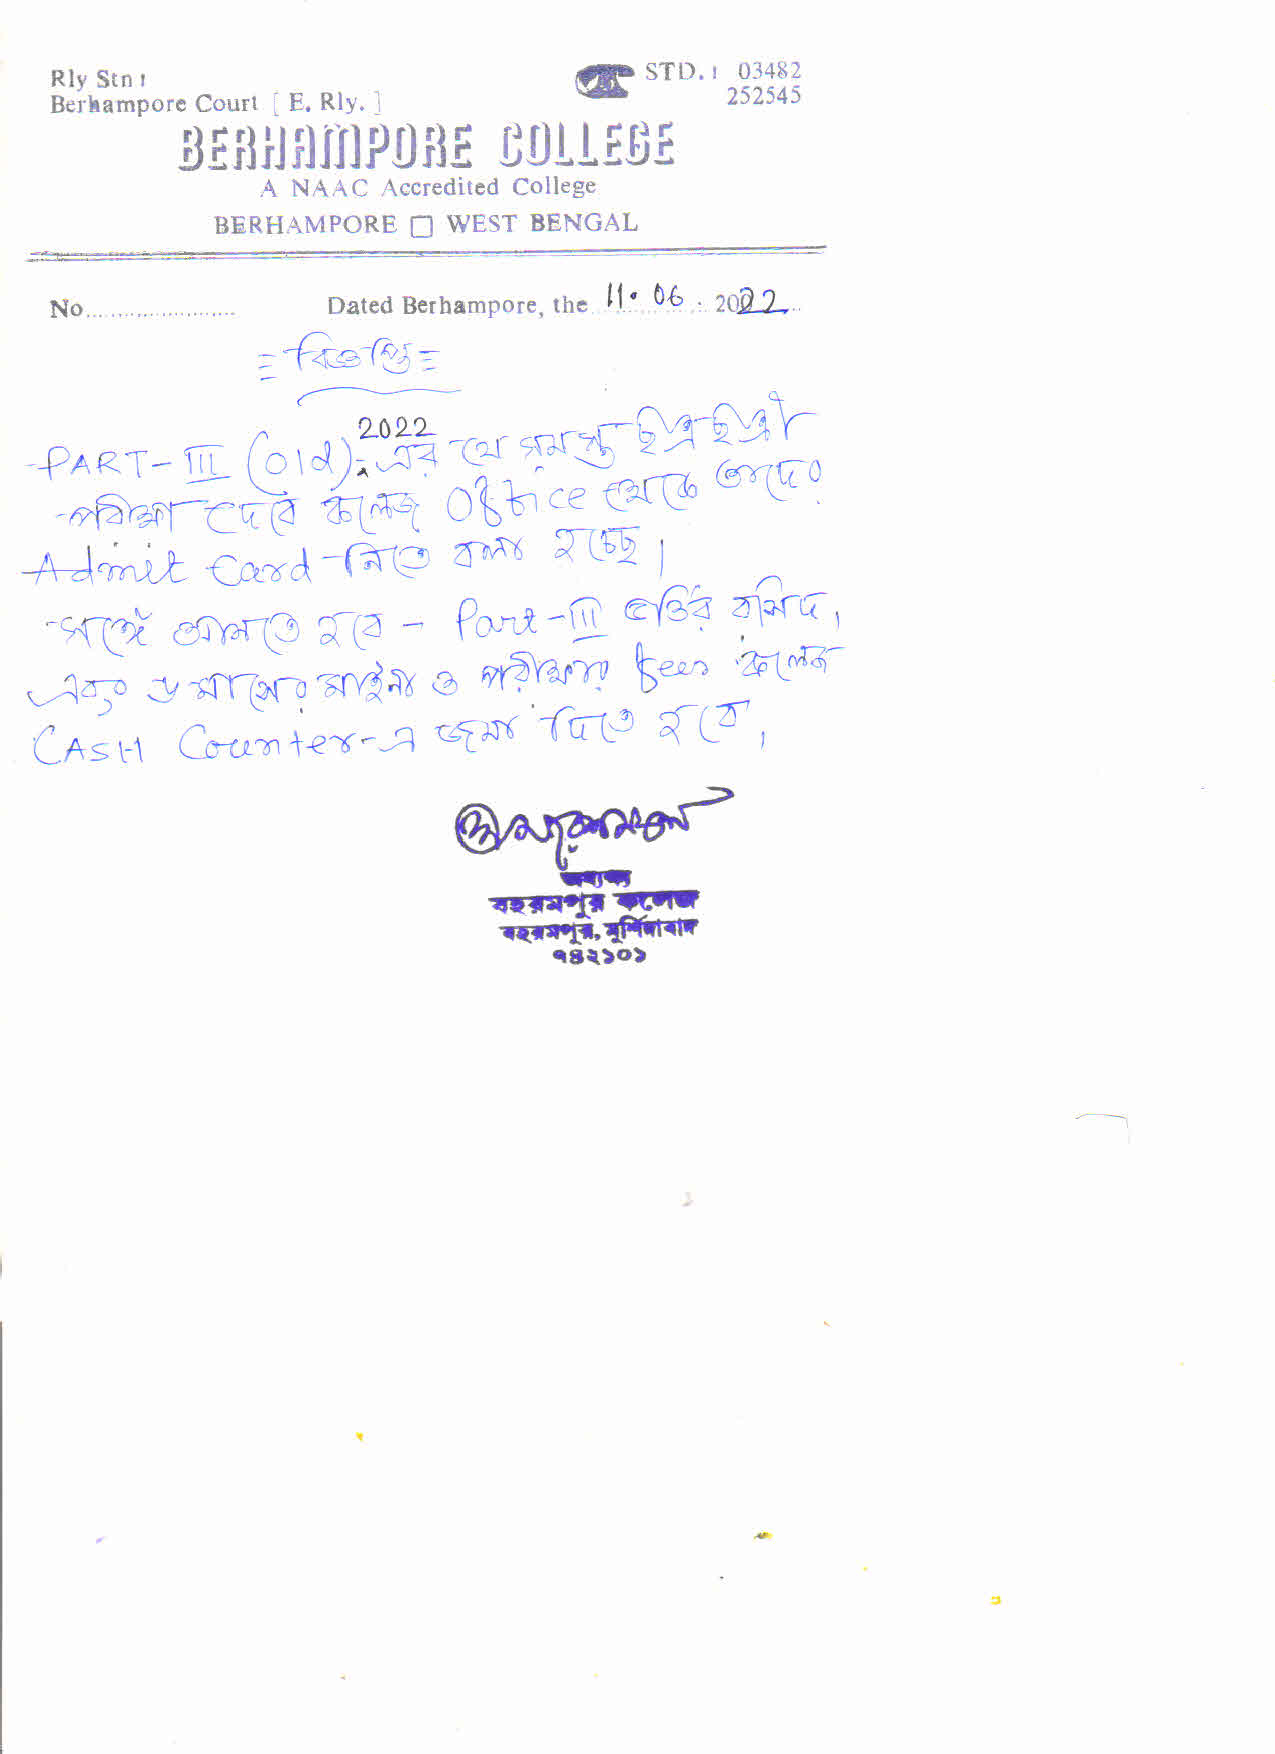 Rly Stn :
Berhampore Court [ E. Rly. ]
STD. : 03482
252545
BERHAMPORE COLLEGE
A NAAC Accredited College
BERHAMPORE □ WEST BENGAL
No........................ Dated Berhampore, the 11. 06 . 2022
= বিজ্ঞপ্তি =
PART-III (old) 2022 এর যে সমস্ত ছাত্র ছাত্রী
পরীক্ষা দেবে কলেজ Office থেকে তাদের
Admit Card নিতে বলা হচ্ছে।
সঙ্গে আনতে হবে - Part-III ভর্তির রসিদ,
এবং ৬ মাসের মাইনা ও পরীক্ষার fees কলেজ
CASH Counter-এ জমা দিতে হবে,
অধ্যক্ষ
বহরমপুর কলেজ
বহরমপুর, মুর্শিদাবাদ
৭৪২১০১